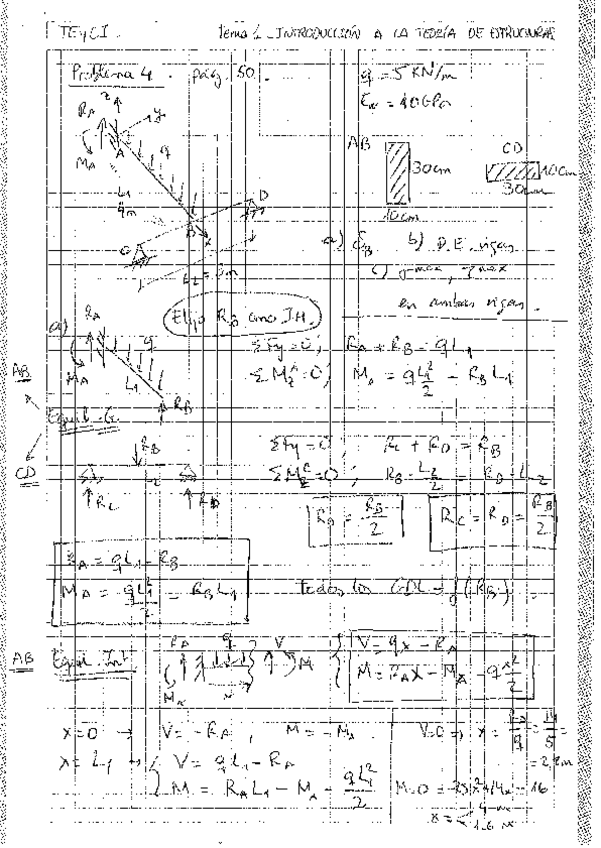 TEyCI. Tema 1 - INTRODUCCIÓN A LA TEORÍA DE ESTRUCTURAS
Problema 4. pág 50.
q = 5 KN/m
= 10 GPa
z
y
R_A
M_A
A
q
L1
4m
B
x
C
D
L2 = m
AB
30cm
10cm
CD
10cm
30cm
a) δ_B b) D.E. vigas
c) σmax, τmax
en ambas vigas.
Elijo R_B como I.H.
a)
R_A
q
M_A
L1
R_B
AB
Equil. G.
CD
ΣFy = 0; R_A + R_B = qL1
ΣM_z^A = 0; M_A = qL1²/2 - R_B L1
R_B
L2
R_C
R_D
ΣFy = 0; R_C + R_D = R_B
ΣM_z^C = 0; R_B L2/2 = R_D L2
R_D = R_B/2
R_C = R_D = R_B/2
R_A = qL1 - R_B
M_A = qL1²/2 - R_B L1
Todos los GDL = f(R_B)
AB Equil. Int
R_A
q
V
M
M_A
x
V = qx - R_A
M = R_A x - M_A - qx²/2
x=0 → V = -R_A, M = -M_A
x = L1 → V = qL1 - R_A
M = R_A L1 - M_A - qL1²/2
V=0 → x = R_A/q = 14/5 =
= 2,8m
M=0 =
x = 4 m
1.6 m